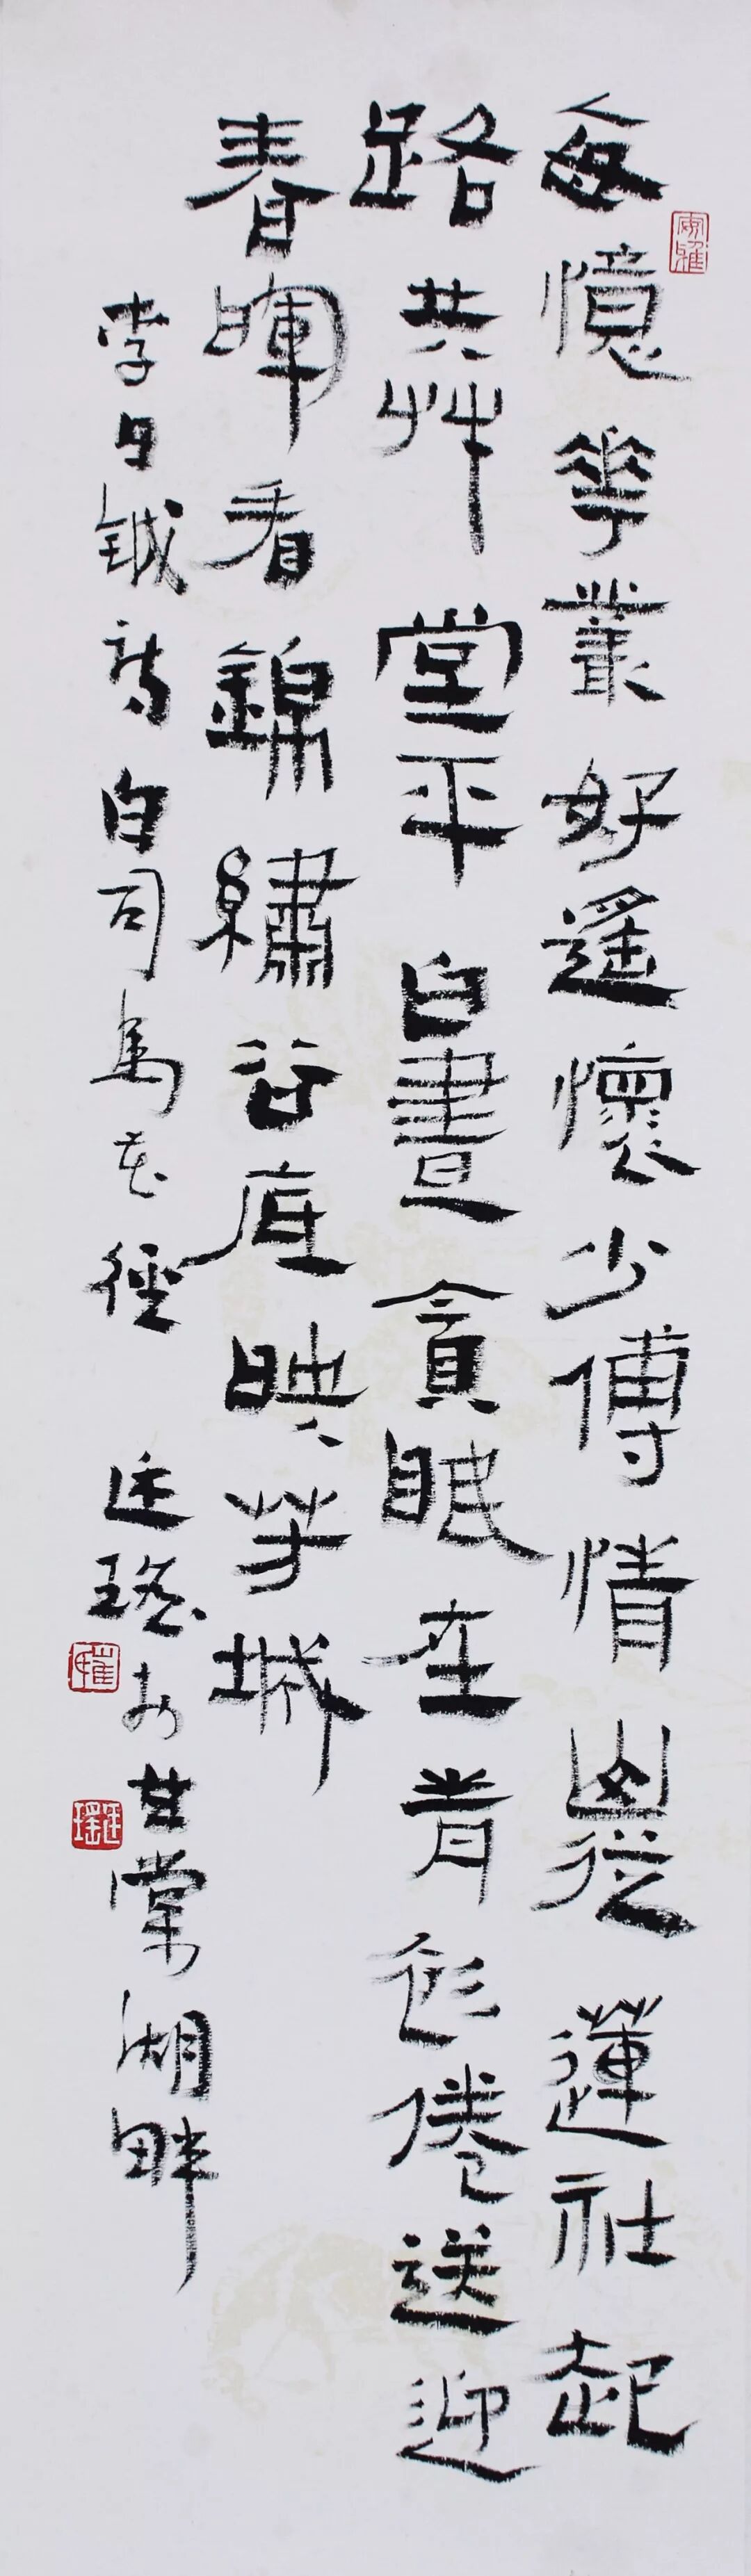 每憶華叢好遙懷少傅情幽從蓮社起
路共艸堂平白晝貪眠在青衫倦送迎
春暉看錦繡谷底映芳城
李日鉞詩白司馬花徑 廷瑤於甘棠湖畔
廷瑤